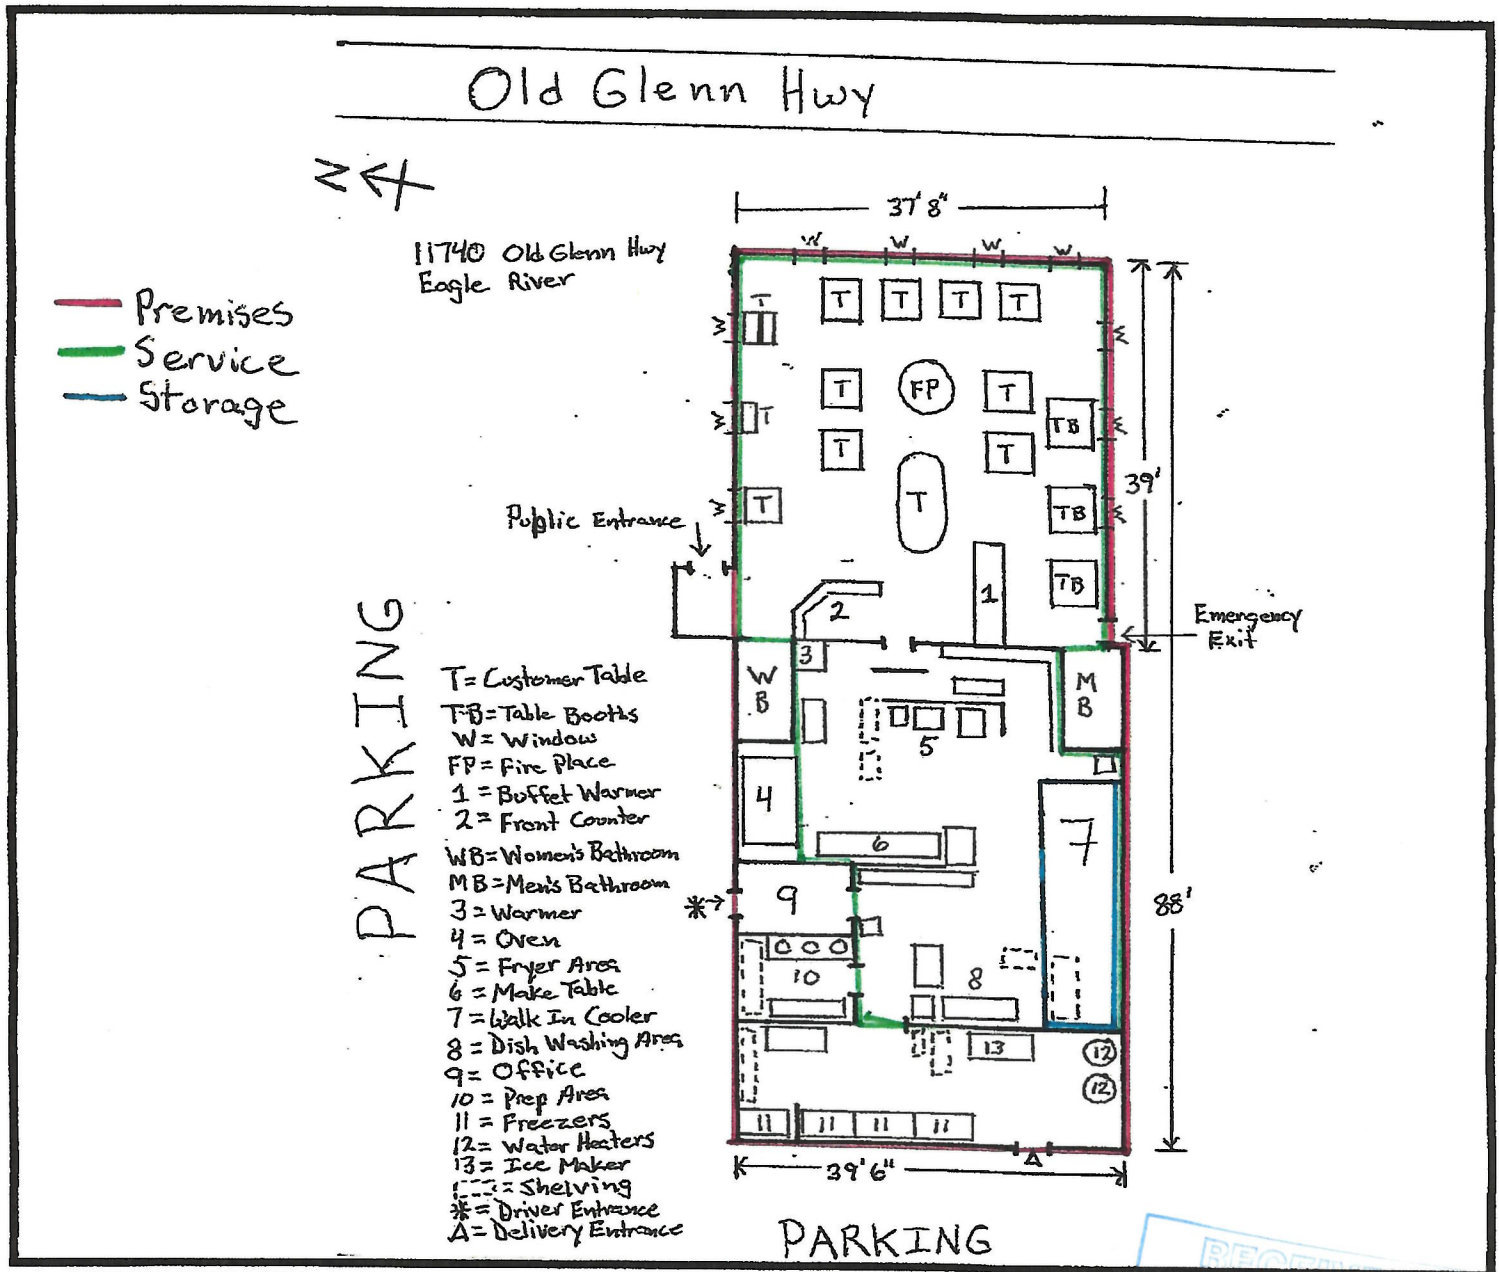 Old Glenn Hwy
N
37' 8"
11740 Old Glenn Hwy
Eagle River
Premises
Service
Storage
W W W W
T T T T T
W W
T FP T
W T TB W
T T
39'
W T T TB W
Public Entrance
TB
1
2
Emergency
Exit
PARKING
T= Customer Table
TB= Table Booths
W= Window
FP= Fire Place
1 = Buffet Warmer
2= Front Counter
WB= Women's Bathroom
MB= Men's Bathroom
3= Warmer
4= Oven
5= Fryer Area
6= Make Table
7= Walk In Cooler
8= Dish Washing Area
9= Office
10= Prep Area
11= Freezers
12= Water Heaters
13= Ice Maker
= Shelving
*= Driver Entrance
Δ= Delivery Entrance
3
W
B
M
B
5
4
6
7
88'
* 9
10
8
13
12
12
11 11 11 11
Δ
39' 6"
PARKING